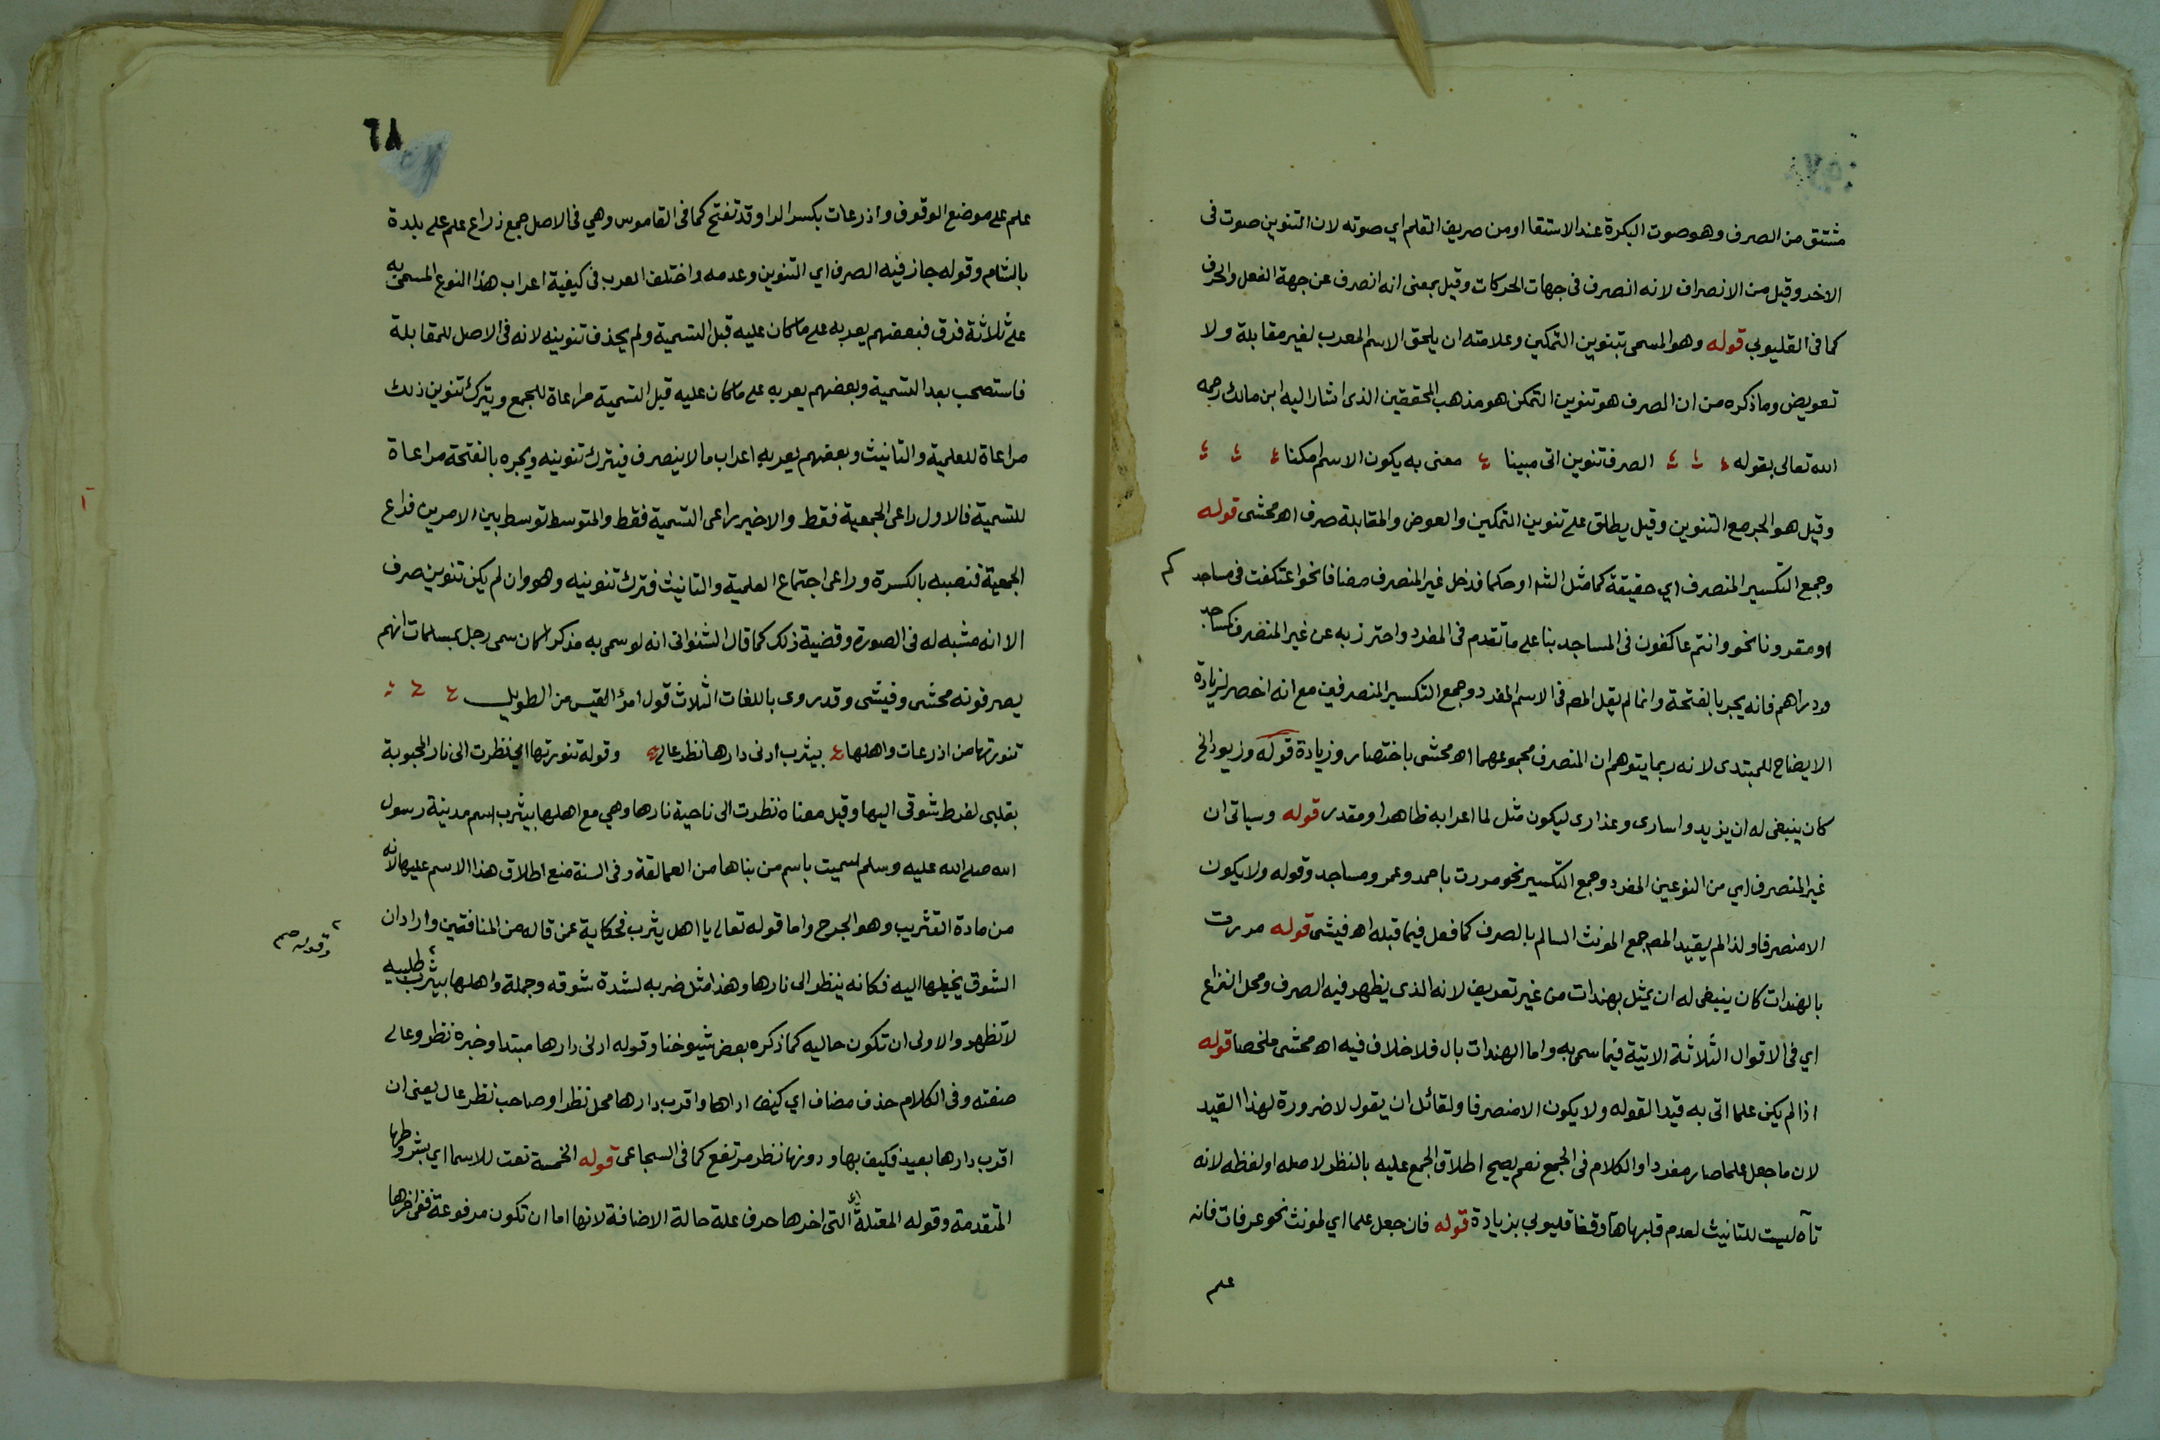 مشتق من الصرف وهو صوت البكرة عند الاستقا او من صريف القلم اي صوته لان التنوين صوت فى
الاخر وقيل من الانصراف لانه انصرف فى جهات الحركات وقيل بمعنى انه انصرف عن جهة الفعل والحرف
كما فى القليوبي قوله وهو المسمى بتنوين التمكين وعلامته ان يلحق الاسم المعرب لغير مقابلة ولا
تعويض وما ذكره من ان الصرف هو تنوين التمكن هو مذهب المحققين الذى اشار اليه ابن مالك رحمه
الله تعالى بقوله الصرف تنوين اتى مبينا معنى به يكون الاسم امكنا
وقيل هو الجر مع التنوين وقيل يطلق على تنوين التمكين والعوض والمقابلة صرف اه محشى قوله
وجمع التكسير المنصرف اي حقيقة كما مثل الش او حكما فدخل غير المنصرف مضافا نحو اعتكفت فى مساجد
كم
او مقرونا نحو وانتم عاكفون فى المساجد بنا على ما تقدم فى المفرد واحترز به عن غير المنصرف كمساجد
ودراهم فانه يجر بالفتحة وانما لم يقل المص فى الاسم المفرد وجمع التكسير المنصرفين مع انه اخصر لزيادة
الايضاح للمبتدى لانه ربما يتوهم ان المنصرف مجموعهما اه محشى باختصار وزيادة قوله وزيود الخ
كان ينبغى له ان يزيد واسارى وعذارى ليكون مثل لما اعرابه ظاهرا ومقدر قوله وسياتى ان
غير المنصرف اي من النوعين المفرد وجمع التكسير نحو مررت باحمد وعمر ومساجد وقوله ولا يكون
الا منصرفا ولذا لم يقيد المص جمع المونث السالم بالصرف كما فعل فيما قبله اه فيشى قوله مررت
بالهندات كان ينبغى له ان يمثل بهندات من غير تعريف لانه الذى يظهر فيه الصرف ومحل النزاع
اي فى الاقوال الثلاثة الاتية فيما سمى به واما الهندات بال فلا خلاف فيه اه محشى ملخصا قوله
اذا لم يكن علما اتى به قيدا لقوله ولا يكون الا منصرفا ولقائل ان يقول لا ضرورة لهذا القيد
لان ما جعل علما صار مفردا والكلام فى الجمع نعم يصح اطلاق الجمع عليه بالنظر لاصله او لفظه لانه
تآه ليست للتانيث لعدم قلبها هآ وقفا قليوبي بزيادة قوله فان جعل علما اي لمونث نحو عرفات فانه
علم
٦٨
علم على موضع الوقوف واذرعات بكسر الرا وقد تفتح كما فى القاموس وهي فى الاصل جمع ذراع علم على بلدة
بالشام وقوله جاز فيه الصرف اي التنوين وعدمه واختلف العرب فى كيفية اعراب هذا النوع المسمى به
على ثلاثة فرق فبعضهم يعربه على ما كان عليه قبل التسمية ولم يحذف تنوينه لانه فى الاصل للمقابلة
فاستصحب بعد التسمية وبعضهم يعربه على ما كان عليه قبل التسمية مراعاة للجمع ويترك تنوين ذلك
مراعاة للعلمية والتانيث وبعضهم يعربه اعراب ما لا ينصرف فيترك تنوينه ويجره بالفتحة مراعاة
للتسمية فالاول راعى الجمعية فقط والاخير راعى التسمية فقط والمتوسط توسط بين الامرين فراع
الجمعية فنصبه بالكسرة وراعى اجتماع العلمية والتانيث فترك تنوينه وهو وان لم يكن تنوين صرف
الا انه مشبه له فى الصورة وقضية ذلك كما قال الشنوانى انه لو سمى به مذكر كان سمى رجل بمسلمات انهم
يصرفونه محشى وفيشى وقد روى باللغات الثلاث قول امرؤ القيس من الطويل
تنورتها من اذرعات واهلها بيثرب ادنى دارها نظر عالى وقوله تنورتها اي نظرت الى نار المحبوبة
بقلبى لفرط شوقى اليها وقيل معناه نظرت الى ناحية نارها وهي مع اهلها بيثرب اسم مدينة رسول
الله صلى الله عليه وسلم سميت باسم من بناها من العمالقة وفى السنة منع اطلاق هذا الاسم عليها لانه
من مادة التثريب وهو الجرح واما قوله تعالى يا اهل يثرب فحكاية عمن قاله من المنافقين وارادان
وقوله صم
الشوق يخيلها اليه فكانه ينظر الى نارها وهذا مثل ضربه لشدة شوقه وجملة واهلها بيثرب طلبيه
لا تظهر والاولى ان تكون حاليه كما ذكره بعض شيوخنا وقوله ادنى دارها مبتدا وخبره نظر وعالى
صفته وفى الكلام حذف مضاف اي كيف اراها واقرب دارها محل نظر او صاحب نظر عال يعنى ان
اقرب دارها بعيد فكيف بها ودونها نظر مرتفع كما فى السجاعى قوله الخمسة نعت للاسما اي بشروطها
المتقدمة وقوله المعتلة اي التى اخرها حرف علة حالة الاضافة لانها اما ان تكون مرفوعة ففى اخرها